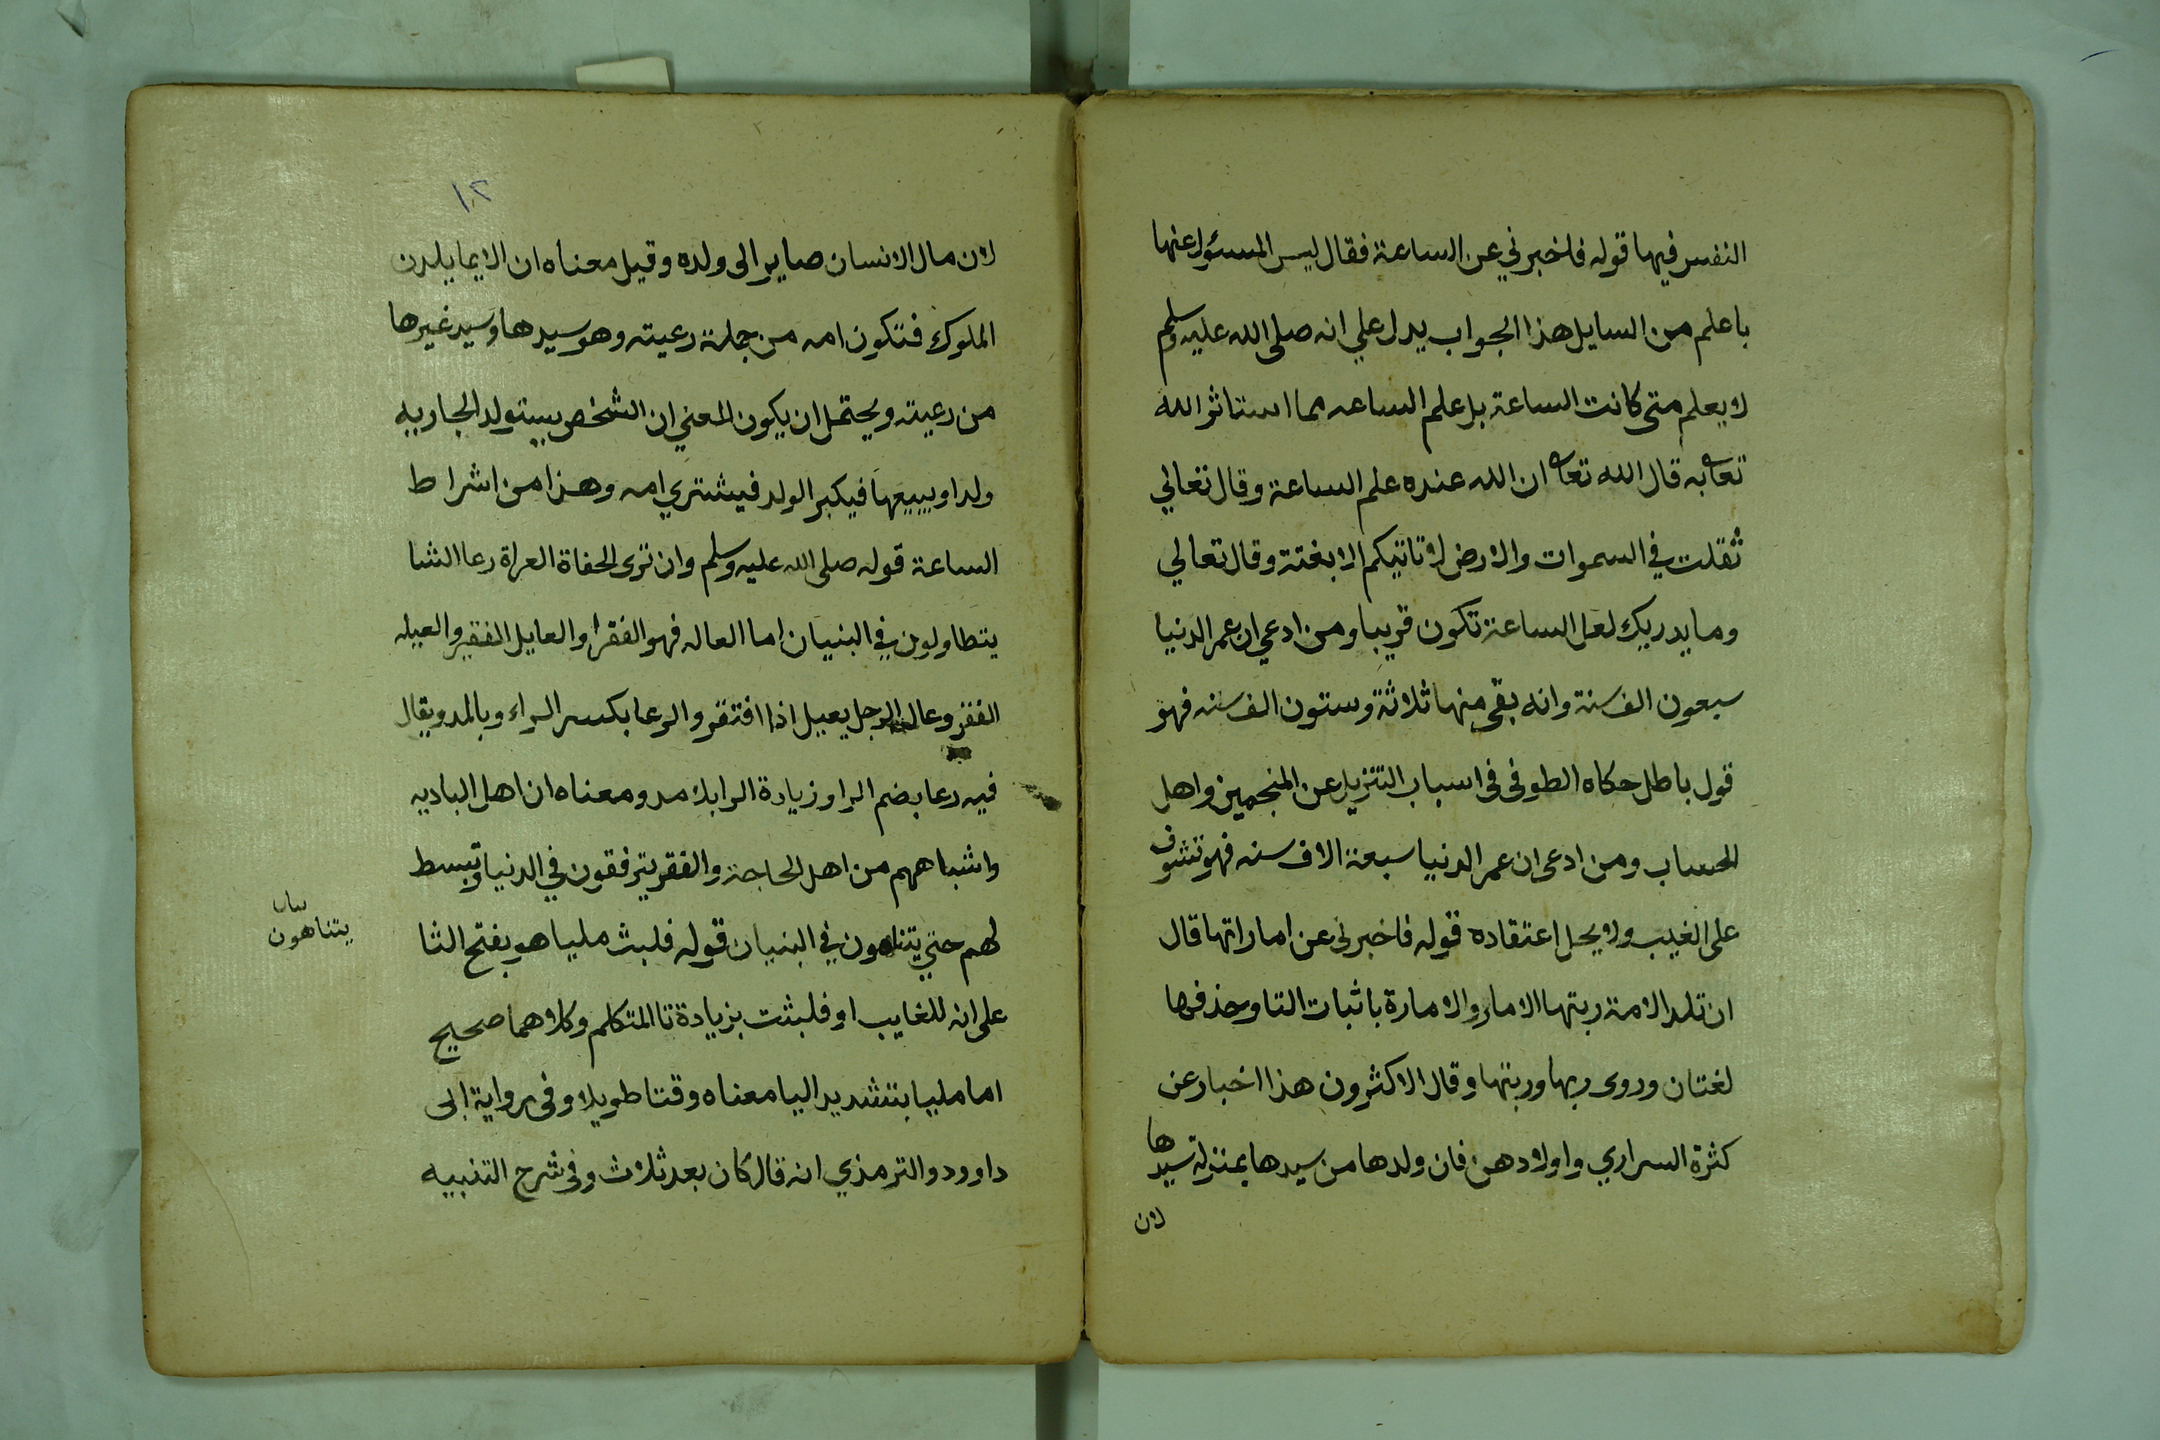 النفس فيها قوله فاخبرني عن الساعة فقال ليس المسئول عنها
باعلم من السايل هذا الجواب يدل علي انه صلى الله عليه وسلم
لا يعلم متى كانت الساعة بل علم الساعه مما استاثر الله
تعا به قال الله تعا ان الله عنده علم الساعة وقال تعالي
ثقلت في السموات والارض لا تاتيكم الا بغتة وقال تعالي
وما يدريك لعل الساعة تكون قريبا ومن ادعي ان عمر الدنيا
سبعون الف سنة وانه بقى منها ثلاثة وستون الف سنه فهو
قول باطل حكاه الطوفى فى اسباب التنزيل عن المنجمين واهل
الحساب ومن ادعى ان عمر الدنيا سبعة الاف سنه فهو تشوف
على الغيب ولا يحل اعتقاده قوله فاخبرنى عن اماراتها قال
ان تلد الامة ربتها الامار والامارة باثبات التا وحذفها
لغتان وروى ربها وربتها وقال الاكثرون هذا اخبار عن
كثرة السراري واولادهن فان ولدها من سيدها بمنزلة سيدها
لان
١٢
لان مال الانسان صاير الى ولده وقيل معناه ان الايما يلدن
الملوك فتكون امه من جملة رعيته وهو سيدها وسيد غيرها
من رعيته ويحتمل ان يكون المعني ان الشخص يستولد الجاريه
ولدا ويبيعها فيكبر الولد فيشتري امه وهذا من اشراط
الساعة قوله صلى الله عليه وسلم وان ترى الحفاة العراة رعا الشا
يتطاولون في البنيان اما العاله فهو الفقرا والعايل الفقير والعيله
الفقر وعال الرجل يعيل اذا افتقر والرعا بكسر الراء وبالمد ويقال
فيه رعا بضم الرا وزيادة الرا بلا مد ومعناه ان اهل الباديه
واشباههم من اهل الحاجة والفقر يترفقون في الدنيا وتبسط
لهم حتي يتناهون في البنيان قوله فلبث مليا هو بفتح الثا
على انه للغايب او فلبثت بزيادة تا المتكلم وكلاهما صحيح
اما مليا بتشديد اليا معناه وقتا طويلا وفى رواية ابى
داوود والترمذي انه قال كان بعد ثلاث وفى شرح التنبيه
بيان
يتناهون